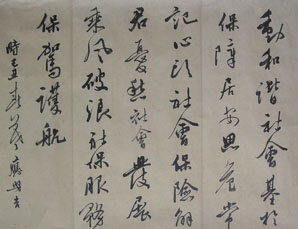 動和諧社會基於
保障居安思危常
記心頭社會保險解
君憂愁社會發展
乘風破浪社保服務
保駕護航
時己丑春